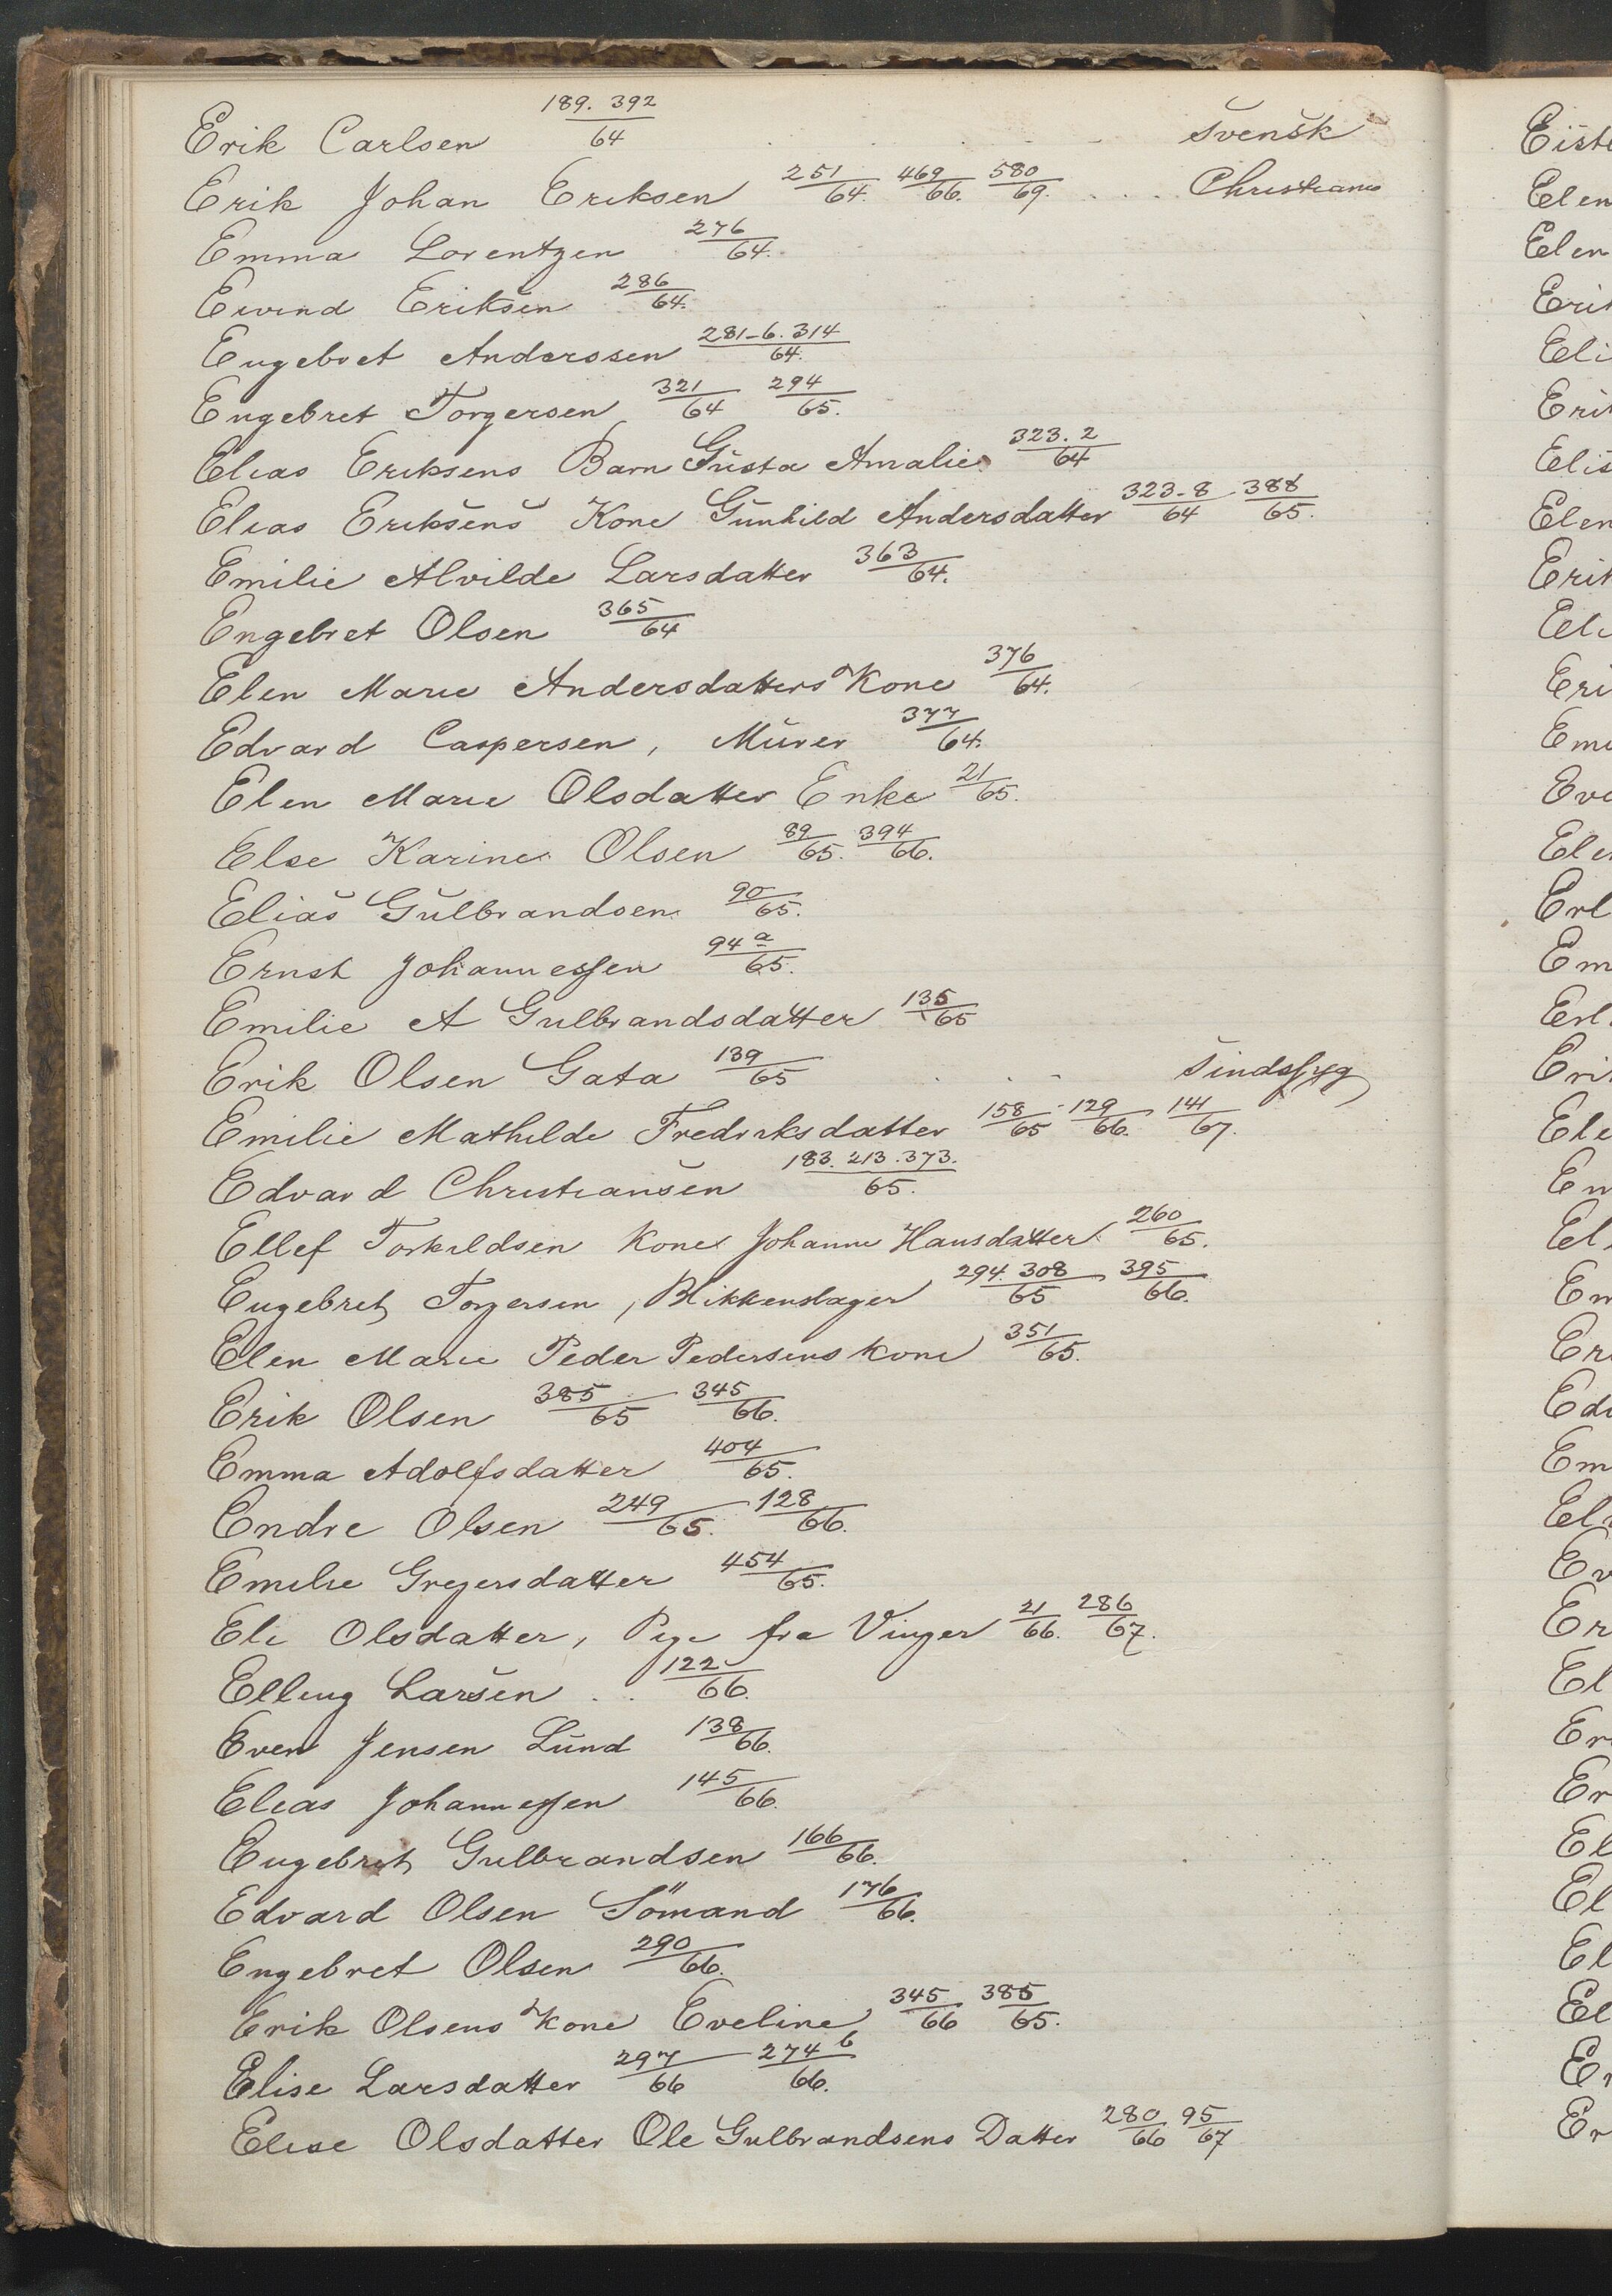 Erik Carlsen 189. 392/64 Svensk
Erik Johan Eriksen 251/64. 469/66. 580/69. Christiania
Emma Lorentzen 276/64.
Eivind Eriksen 286/64.
Engebret Anderssen 281-6. 314/64.
Engebret Torgersen 321/64 294/65.
Elias Eriksens Barn Gusta Amalie 323. 2/64
Elias Eriksens Kone Gunhild Andersdatter 323-8/64 388/65.
Emilie Alvilde Larsdatter 363/64.
Engebret Olsen 365/64
Elen Marie Andersdatters Kone 376/64.
Edvard Caspersen, Murer 377/64.
Elen Marie Olsdatter Enke 21/65.
Else Karine Olsen 89/65. 394/66.
Elias Gulbrandsen 90/65.
Ernst Johannessen 94 a/65.
Emilie A Gulbrandsdatter 135/65
Erik Olsen Gata 139/65 Sindssyg
Emilie Mathilde Fredriksdatter 158/65 129/66. 141/67.
Edvard Christiansen 183. 213. 373./65.
Ellef Torkildsen Kone Johanne Hansdatter 260/65.
Engebret Torgersen, Blikkenslager 294. 308/65 395/66.
Elen Marie Peder Pedersens Kone 351/65.
Erik Olsen 385/65 345/66.
Emma Adolfsdatter 404/65.
Endre Olsen 249/65. 128/66.
Emilie Gregersdatter 454/65.
Eli Olsdatter, Pige fra Vinger 21/66. 286/67.
Elling Larsen .. 122/66.
Even Jensen Lund 138/66.
Elias Johannessen 145/66.
Engebret Gulbrandsen 166/66.
Edvard Olsen Sömand 176/66.
Engebret Olsen 290/66.
Erik Olsens Kone Eveline 345/66 385/65.
Elise Larsdatter 297/66 274 b/66.
Elise Olsdatter Ole Gulbrandsens Datter 280/66 95/67